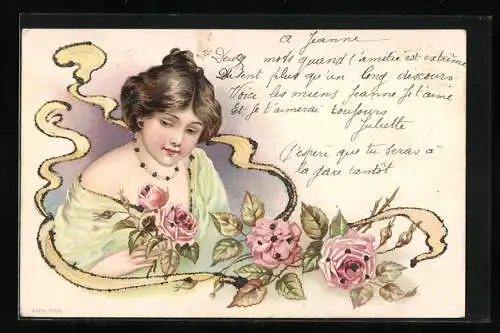 A Jeanne
Deux mots quand l'amitié est extrême
Disent plus qu'un long discours
Voici les miens Jeanne Je t'aime
Et Je t'aimerai toujours
Juliette
J'espère que tu seras à
la gare tantôt